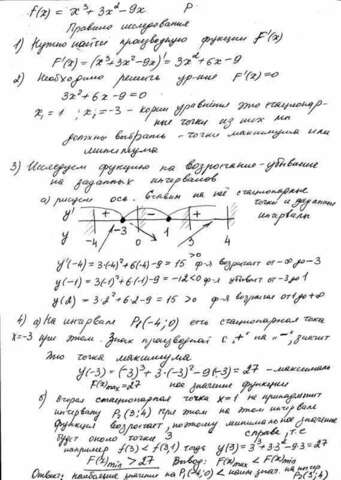 f(x) = x³+3x²-9x
Правило исследования
1) Нужно найти производную функции F'(x)
F'(x) = (x³+3x²-9x)' = 3x²+6x-9
2) Необходимо решить ур-ние F'(x)=0
3x²+6x-9=0
x₁=1 ; x₂=-3 - корни уравнения это стационар-
ные точки из них мы
должны выбрать - точки максимума или
минимума
3) Исследуем функцию на возрастание-убывание
на заданных интервалах
а) рисуем ось. Ставим на неё стационарные
точки и заданные
интервалы
y' + - +
y -4 -3 0 1 3 4
y'(-4) = 3·(-4)²+6(-4)-9 = 15 >0 ф-я возрастает от -∞ до -3
y(-1) = 3(-1)²+6(-1)-9 = -12<0 ф-я убывает от -3 до 1
y(2) = 3·2²+6·2-9 = 15 >0 ф-я возрастает от 1 до +∞
4) а) На интервале P₁(-4;0) есть стационарная точка
x=-3 при этом. Знак производной с „+" на „-", значит
это точка максимума
y(-3) = (-3)³+3·(-3)²-9(-3) = 27 - максималь
F(x)max=27 ное значение функции
б) Вторая стационарная точка x=1 не принадлежит
интервалу P₂(3;4) при этом на этом интервале
функция возрастает, поэтому минимальное значение
будет около точки 3 справа, т.с
например f(3) < f(3,1) тогда y(3) = 3³+3·3²-9·3=27
F(x)min > 27 Вывод: F(x)max < F(x)min
Ответ: наибольшее значение на P₁(-4;0) < наим. знач. на интер
P₂(3;4)